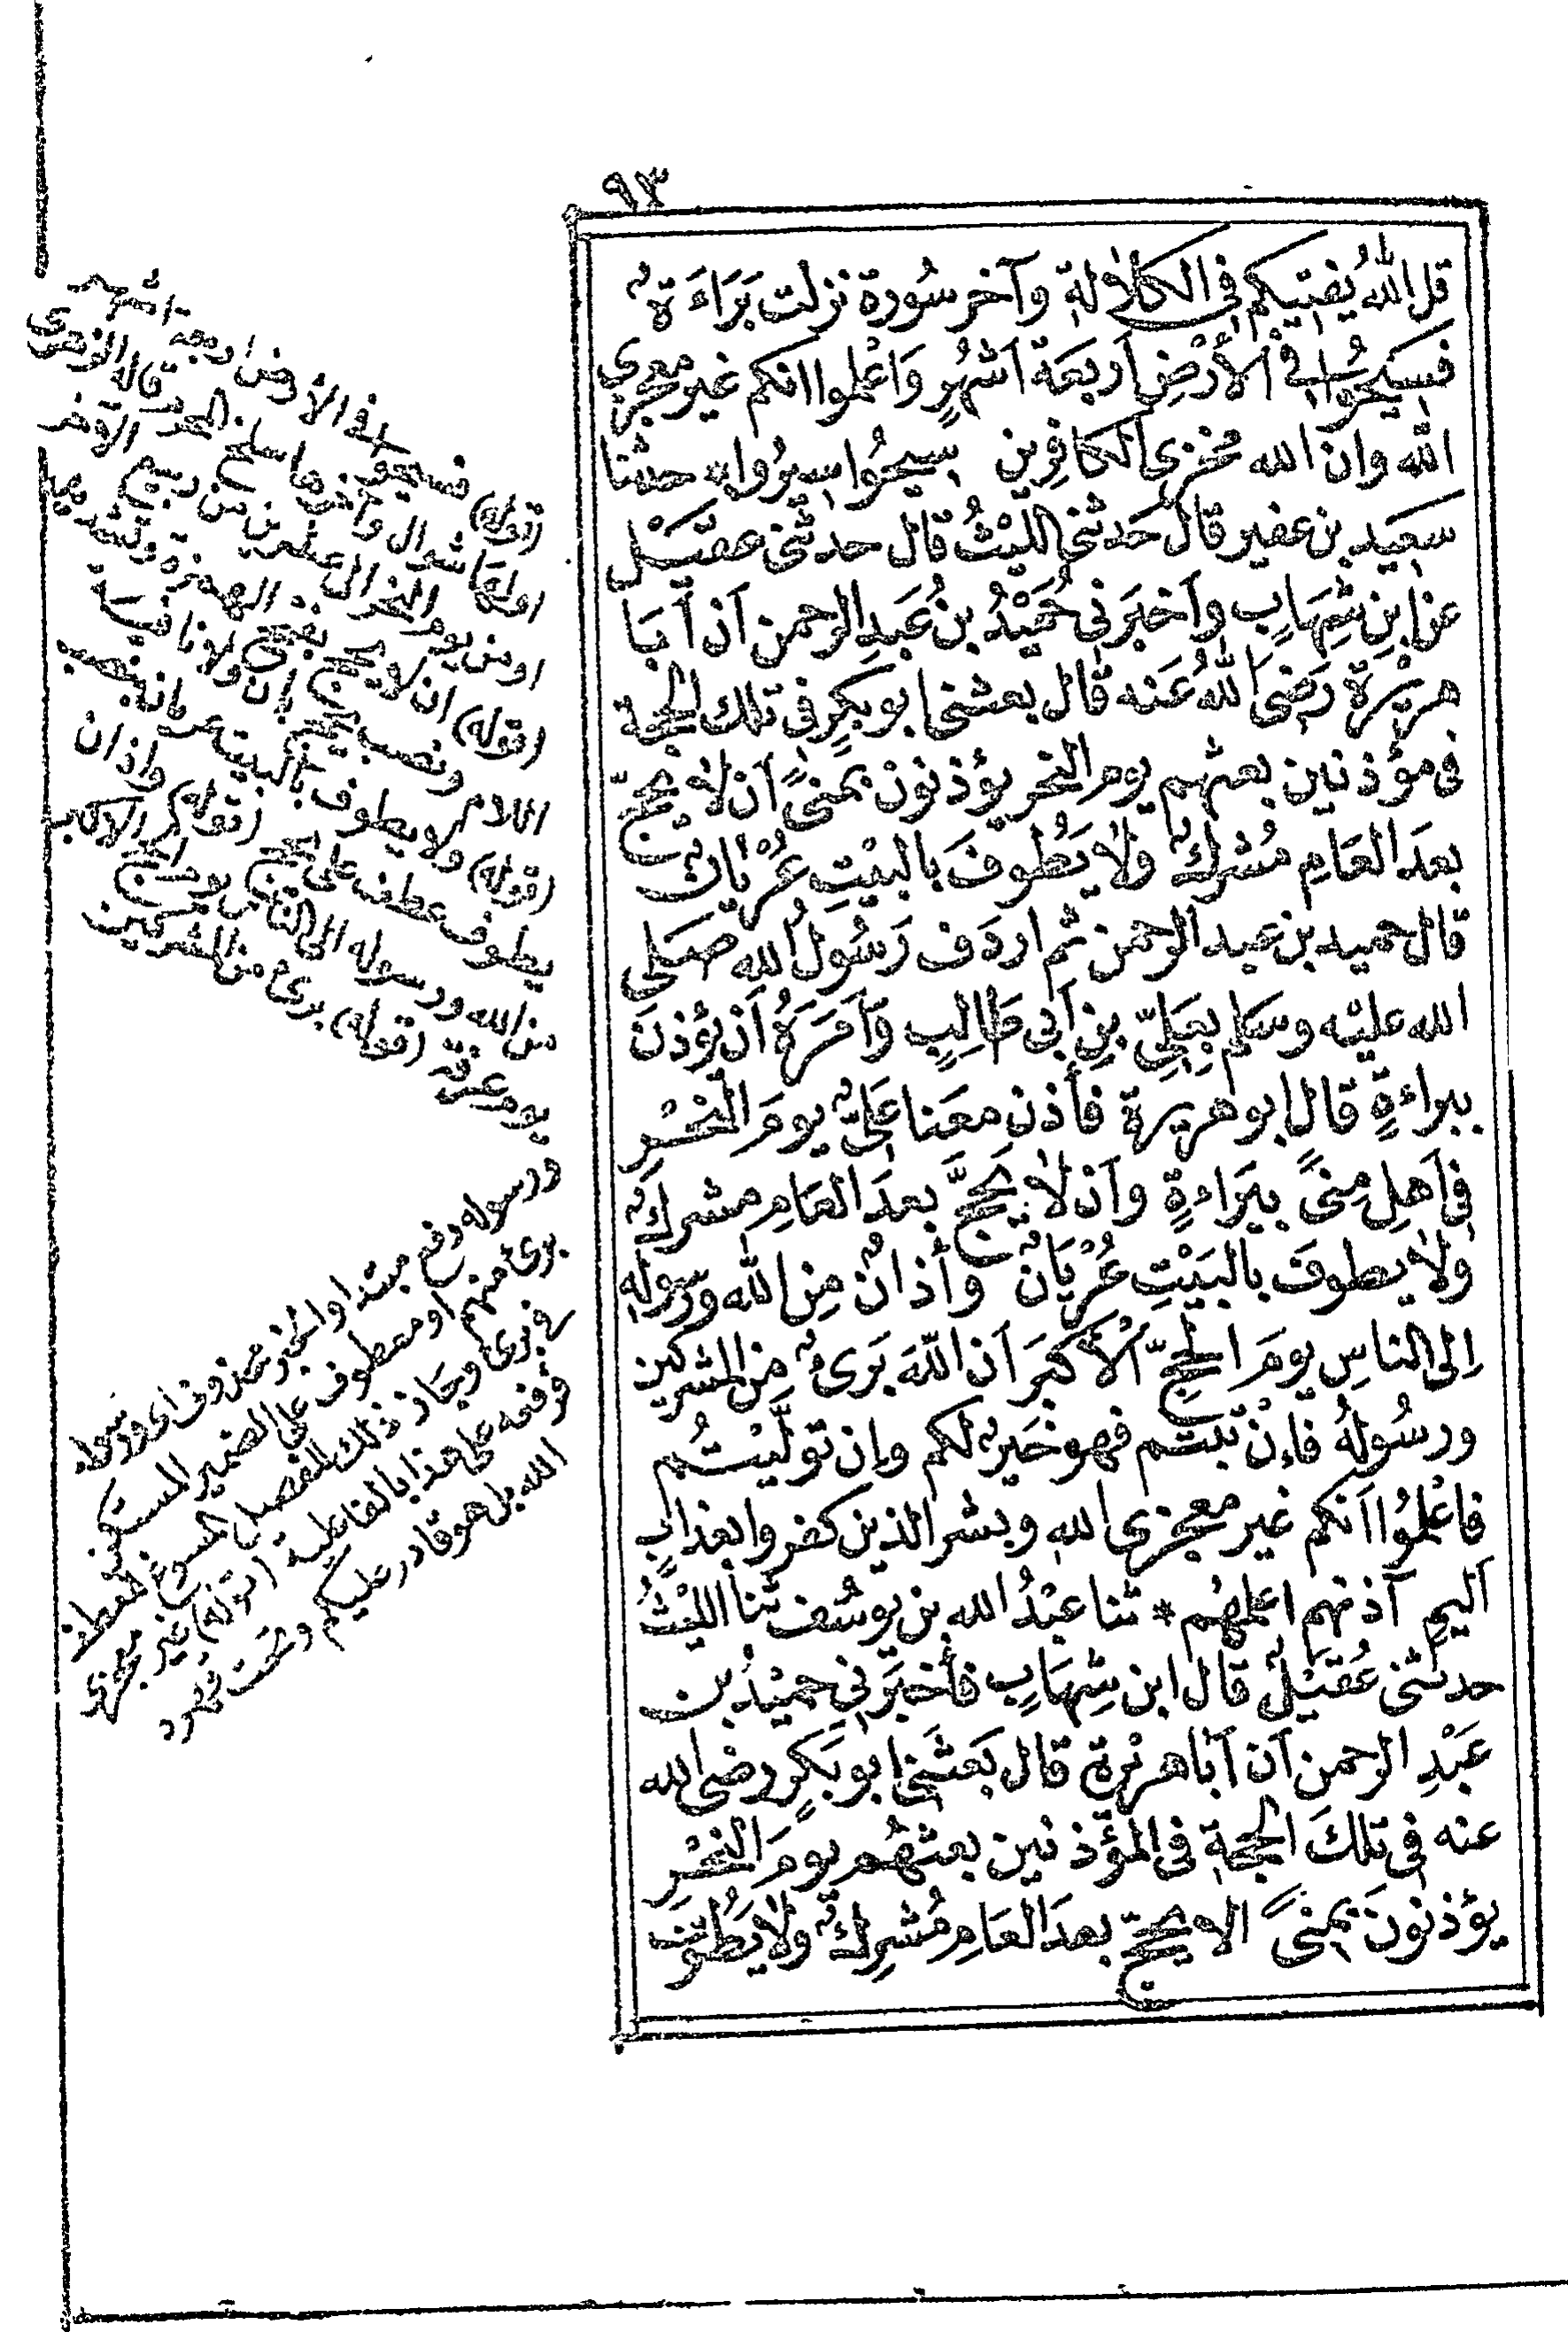 ٩٣
قل الله يُفتيكم في الكلالة وآخر سُورة نزلت بَرَاءَةٌ
فسِيحُوا في الأَرْضِ أربعَة أشهُرٍ وَاعْلموا انكم غير معجزي
الله وان الله مخزي الكافِرين سيحُوا سيرُوا حدثنا
سعيد بن عفير قال حَدثني الليْثُ قال حدثني عقيْل
عن ابنِ شِهَابٍ وأخبرَني حُمَيْدُ بنُ عَبدِ الرحمن أن أبَا
هريْرَة رَضيَ اللهُ عَنه قال بعثني ابو بكرٍ في تلك الحجة
في مؤذنين بعثهم يوم النحر يؤذنون بمنىً أن لا يحجّ
بعدَ العَامِ مُشركٌ ولا يَطُوفَ بالبيْتِ عُرْيانٌ
قال حميد بن عبد الرحمن ثم اردَف رَسُولُ اللهِ صَلى
الله عليْه وسَلم بِعَليِّ بنِ أبي طَالِبٍ وَأمَرَهُ أن يؤذنَ
ببراءةٍ قال ابو هريرة فأذن معَنا عَليٌّ يومَ النحْرِ
في أهلِ مِنىً ببَرَاءةٍ وأن لا يَحجَّ بعدَ العَامِ مشركٌ
ولا يطوفَ بالبَيْتِ عُرْيَانٌ وأذانٌ مِن الله ورسولِهِ
إلى الناسِ يومَ الحجِّ الأكبَرِ أن اللهَ بَرىءٌ من المشركين
ورسُولهُ فإنْ تبْتُم فهو خَيرٌ لكم وإن توَلَّيْتُم
فاعْلمُوا أنكم غير معجزي اللهِ وبشر الذين كفروا بعذابٍ
أليمٍ آذنهم اعلمهُم * ثنا عبْدُ الله بن يوسُف ثنا الليْثُ
حدثني عُقيْلٌ قال ابن شِهَابٍ فأخبَرَني حميْدُ بن
عَبْدِ الرحمن أن أبا هريْرة قال بَعثَني ابو بَكرٍ رضى الله
عنه في تلكَ الحجّة في المؤَذنين بعثهُم يومَ النحْرِ
يؤذنونَ بمنىً الا يحجّ بعدَ العَامِ مُشرِكٌ ولا يَطُوف
(قوله) فسيحوا في الأرض اربعة اشهر
اولها شوال وآخرها سلخ المحرم قاله الزهري
او من يوم النحر الى عشرين من ربيع الآخر
(قوله) ان لا يحج بفتح الهمزة وتشديد
اللام ونصب يحج بأن ولا نافية
(قوله) ولا يطوف بالبيت عريانه بنصب
يطوف عطف على يحج (قوله) واذان
من الله ورسوله الى الناس يوم الحج الأكبر
يوم عرفة (قوله) برئ من المشركين
ورسوله رفع مبتدا والخبر محذوف اى ورسوله
برئ منهم او معطوف على الضمير المستكن
في برئ وجاز ذلك للفصل المسوغ للعطف
فرفعه على هذا بالفاعلية (قوله) غير معجزى
الله بل هو قادر عليكم